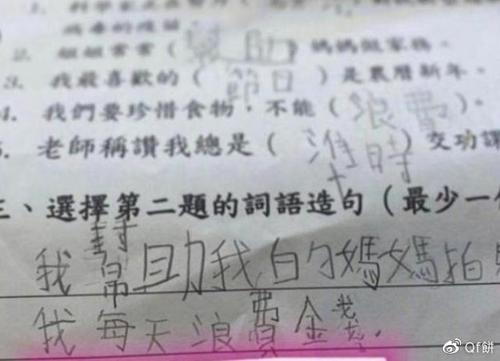 1. 科學家
病毒的
2. 姐姐常常(幫助)媽媽做家務。
3. 我最喜歡的(節日)是農曆新年。
4. 我們要珍惜食物,不能(浪費)。
5. 老師稱讚我總是(準時)交功課
三、選擇第二題的詞語造句(最少一
我幫助我的媽媽拍
我每天浪費金錢.
@Qf餅